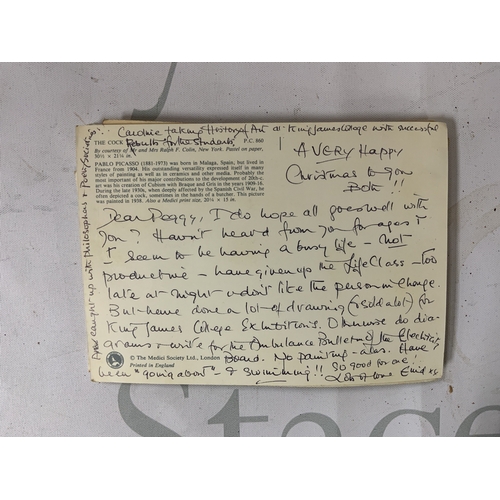 Caroline taking History of Art at King James College with successful
THE COCK Results for the Students P.C. 860
By courtesy of Mr and Mrs Ralph F. Colin, New York. Pastel on paper,
30½ × 21¼ in.
PABLO PICASSO (1881-1973) was born in Malaga, Spain, but lived in
France from 1904. His outstanding versatility expressed itself in many
styles of painting as well as in ceramics and other media. Probably the
most important of his major contributions to the development of 20th-c.
art was his creation of Cubism with Braque and Gris in the years 1909-16.
During the late 1930s, when deeply affected by the Spanish Civil War, he
often chose cruelty and brutality as his subject matter. This picture
was painted in 1938. Also a Medici print size, 20¾ × 15 in.
A VERY Happy
Christmas to you
Both !!!
Dear Peggy, I do hope all goes well with
you? Haven't heard from you for ages &
I seem to be having a busy life – not
productive – have given up the Life Class – too
late at night & don't like the person in charge.
But have done a lot of drawing (& sold a lot) for
King James College Exhibitions. Otherwise do dia-
grams & write for the Ambulance Bulletin of the Electricity
© The Medici Society Ltd., London Board. No painting – alas. Have
Printed in England
been "going about" & Swimming!! So good for one!
Lots of love Enid xx
caught up with philosophers & Poetry Societies.